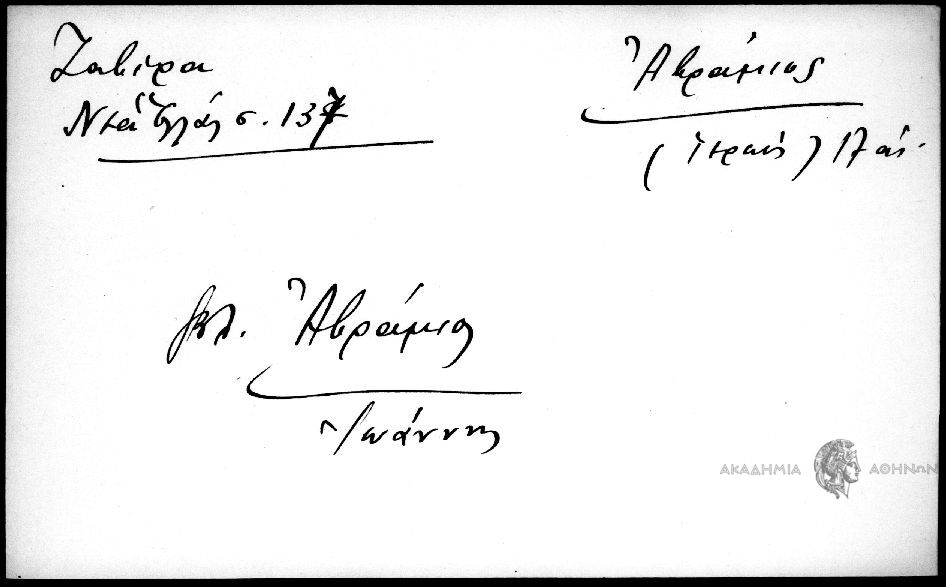 Ζαβίρα
σ. 137
Ἀβράμιος
(ἱερεύς) 17 αἰ.
βλ. Ἀβράμιος
Ἰωάννης
ΑΚΑΔΗΜΙΑ ΑΘΗΝΩΝ